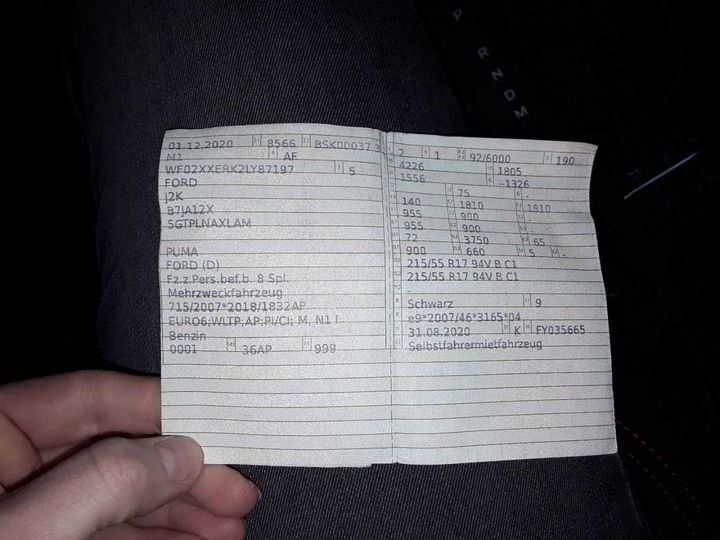 P R N D M
01.12.2020 8566 BSK00037
M1 AF
WF02XXERK2LY87197 5
FORD
J2K
B7JA12X
5GTPLNAXLAM
PUMA
FORD (D)
Fz.z.Pers.bef.b. 8 Spl.
Mehrzweckfahrzeug
715/2007*2018/1832AP
EURO6;WLTP;AP;PI/CI; M, N1 I
Benzin
0001 36AP 999
2 1 92/6000 190
4226 1805
1556 --1326
75 -
140 1810 1810
955 900 -
955 900 -
72 3750 65
900 660 5 -
215/55 R17 94V B C1
215/55 R17 94V B C1
-
Schwarz 9
e9*2007/46*3165*04
31.08.2020 K FY035665
Selbstfahrermietfahrzeug